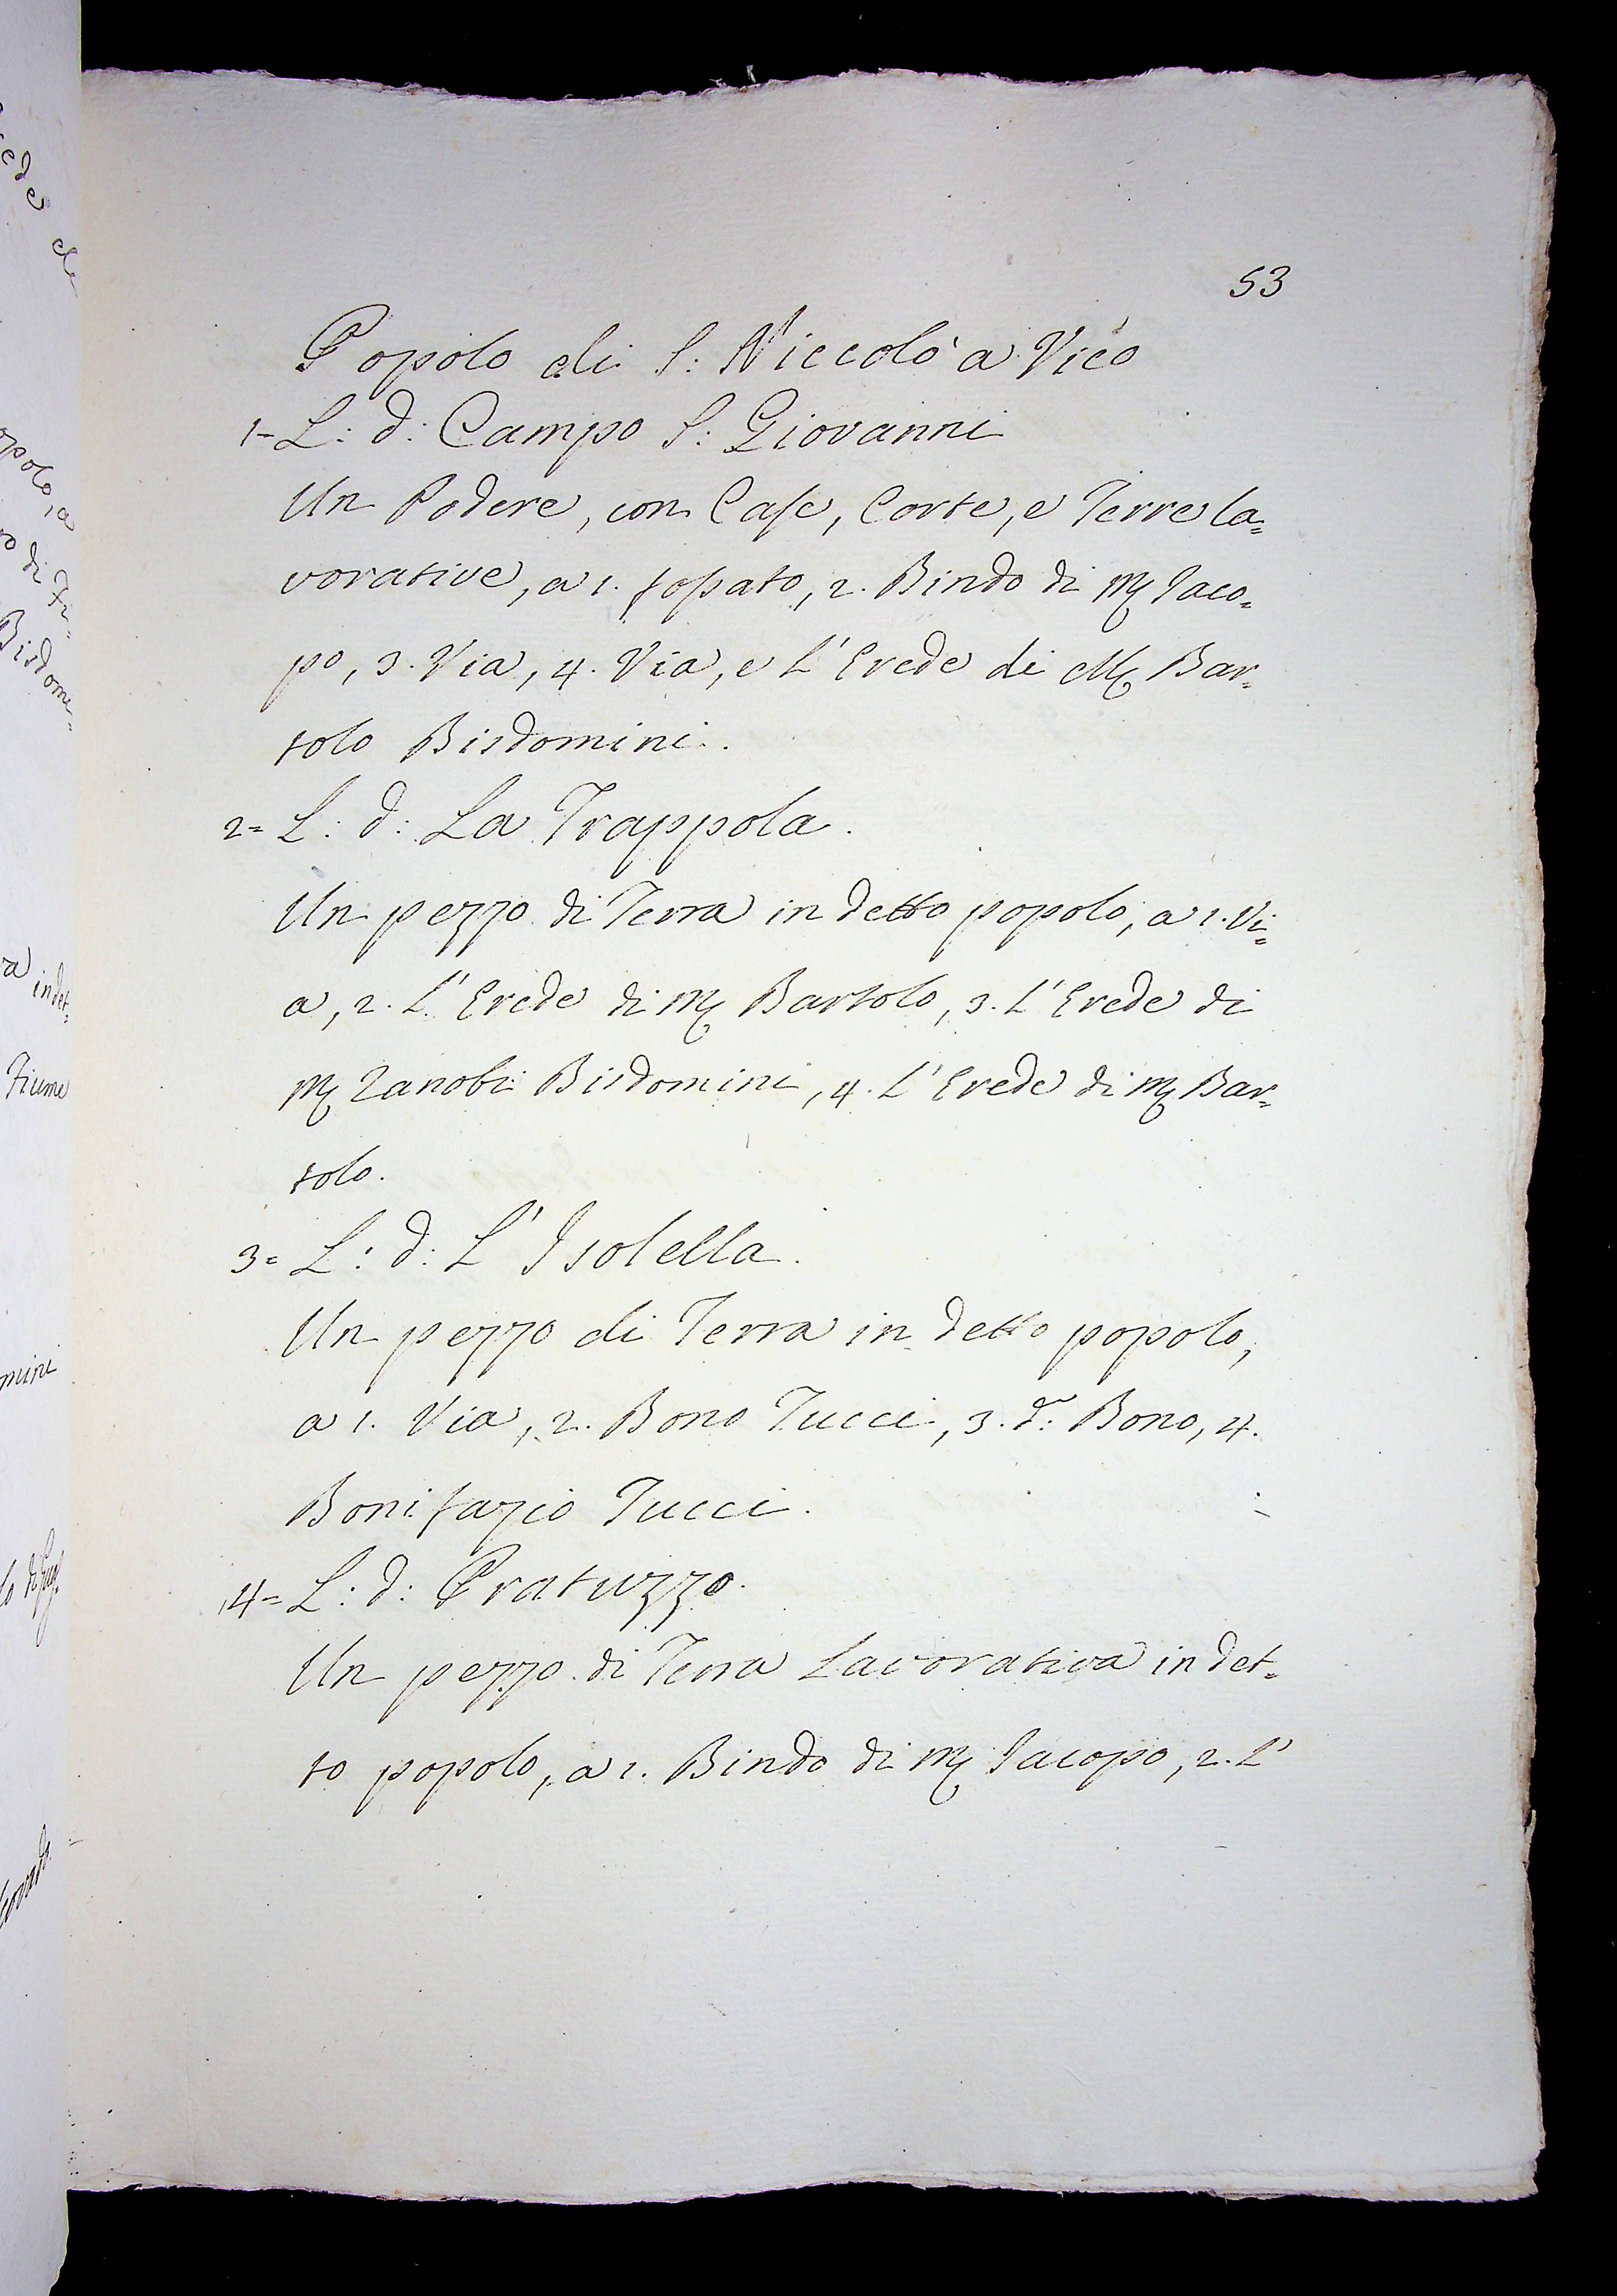 53
Popolo di S: Niccolò a Vico
1- L: d: Campo S: Giovanni
Un Podere, con Case, Corte, e Terre la=
vorative, a 1. fossato, 2. Bindo di M Iaco=
po, 3. Via, 4. Via, e L'Erede di M Bar=
tolo Bisdomini.
2= L: d: La Trappola.
Un pezzo di Terra in detto popolo, a 1. Vi=
a, 2. L'Erede di M Bartolo, 3. L'Erede di
M Zanobi Bisdomini, 4. L'Erede di M Bar=
tolo.
3= L: d: L'Isolella.
Un pezzo di Terra in detto popolo,
a 1. Via, 2. Bono Tucci, 3. d: Bono, 4.
Bonifazio Tucci.
4= L: d: Pratuzzo.
Un pezzo di Terra Lavorativa in det=
to popolo, a 1. Bindo di M Iacopo, 2. L'